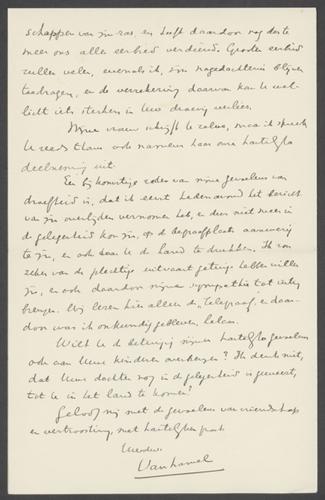 schappen van zijn ras, en heeft daardoor nog des te
meer ons aller eerbied verdiend. Grooten eerbied
zullen velen, evenals ik, zijn nagedachtenis blijven
toedragen, en de verzekering daarvan kan U wel-
licht iets sterken in Uw droevig verlies.
Mijne vrouw schrijft U zelve, maar ik spreek
U reeds thans ook namens haar onze hartelijke
deelneming uit.
Een bijkomstige reden van mijne gevoelens van
droefheid is, dat ik eerst hedenavond het bericht
van zijn overlijden vernomen heb, en dus niet meer in
de gelegenheid kon zijn, op de begraafplaats aanwezig
te zijn, en ook haar U de hand te drukken. Ik zou
zeker van de plechtige uitvaart getuige hebben willen
zijn, en ook daardoor mijne sympathie tot uiting
brengen. Wij lezen hier alleen de "Telegraaf", en daar-
door was ik onkundig gebleven, helaas.
Wilt U de betuiging mijner hartelijke gevoelens
ook aan Uwe kinderen overbrengen? Ik denk niet,
dat Uwe dochter nog in de gelegenheid is geweest,
tot U in het land te komen?
Geloof mij met de gevoelens van vriendschap
en vertroosting, met hartelijken groet.
Van Hamel